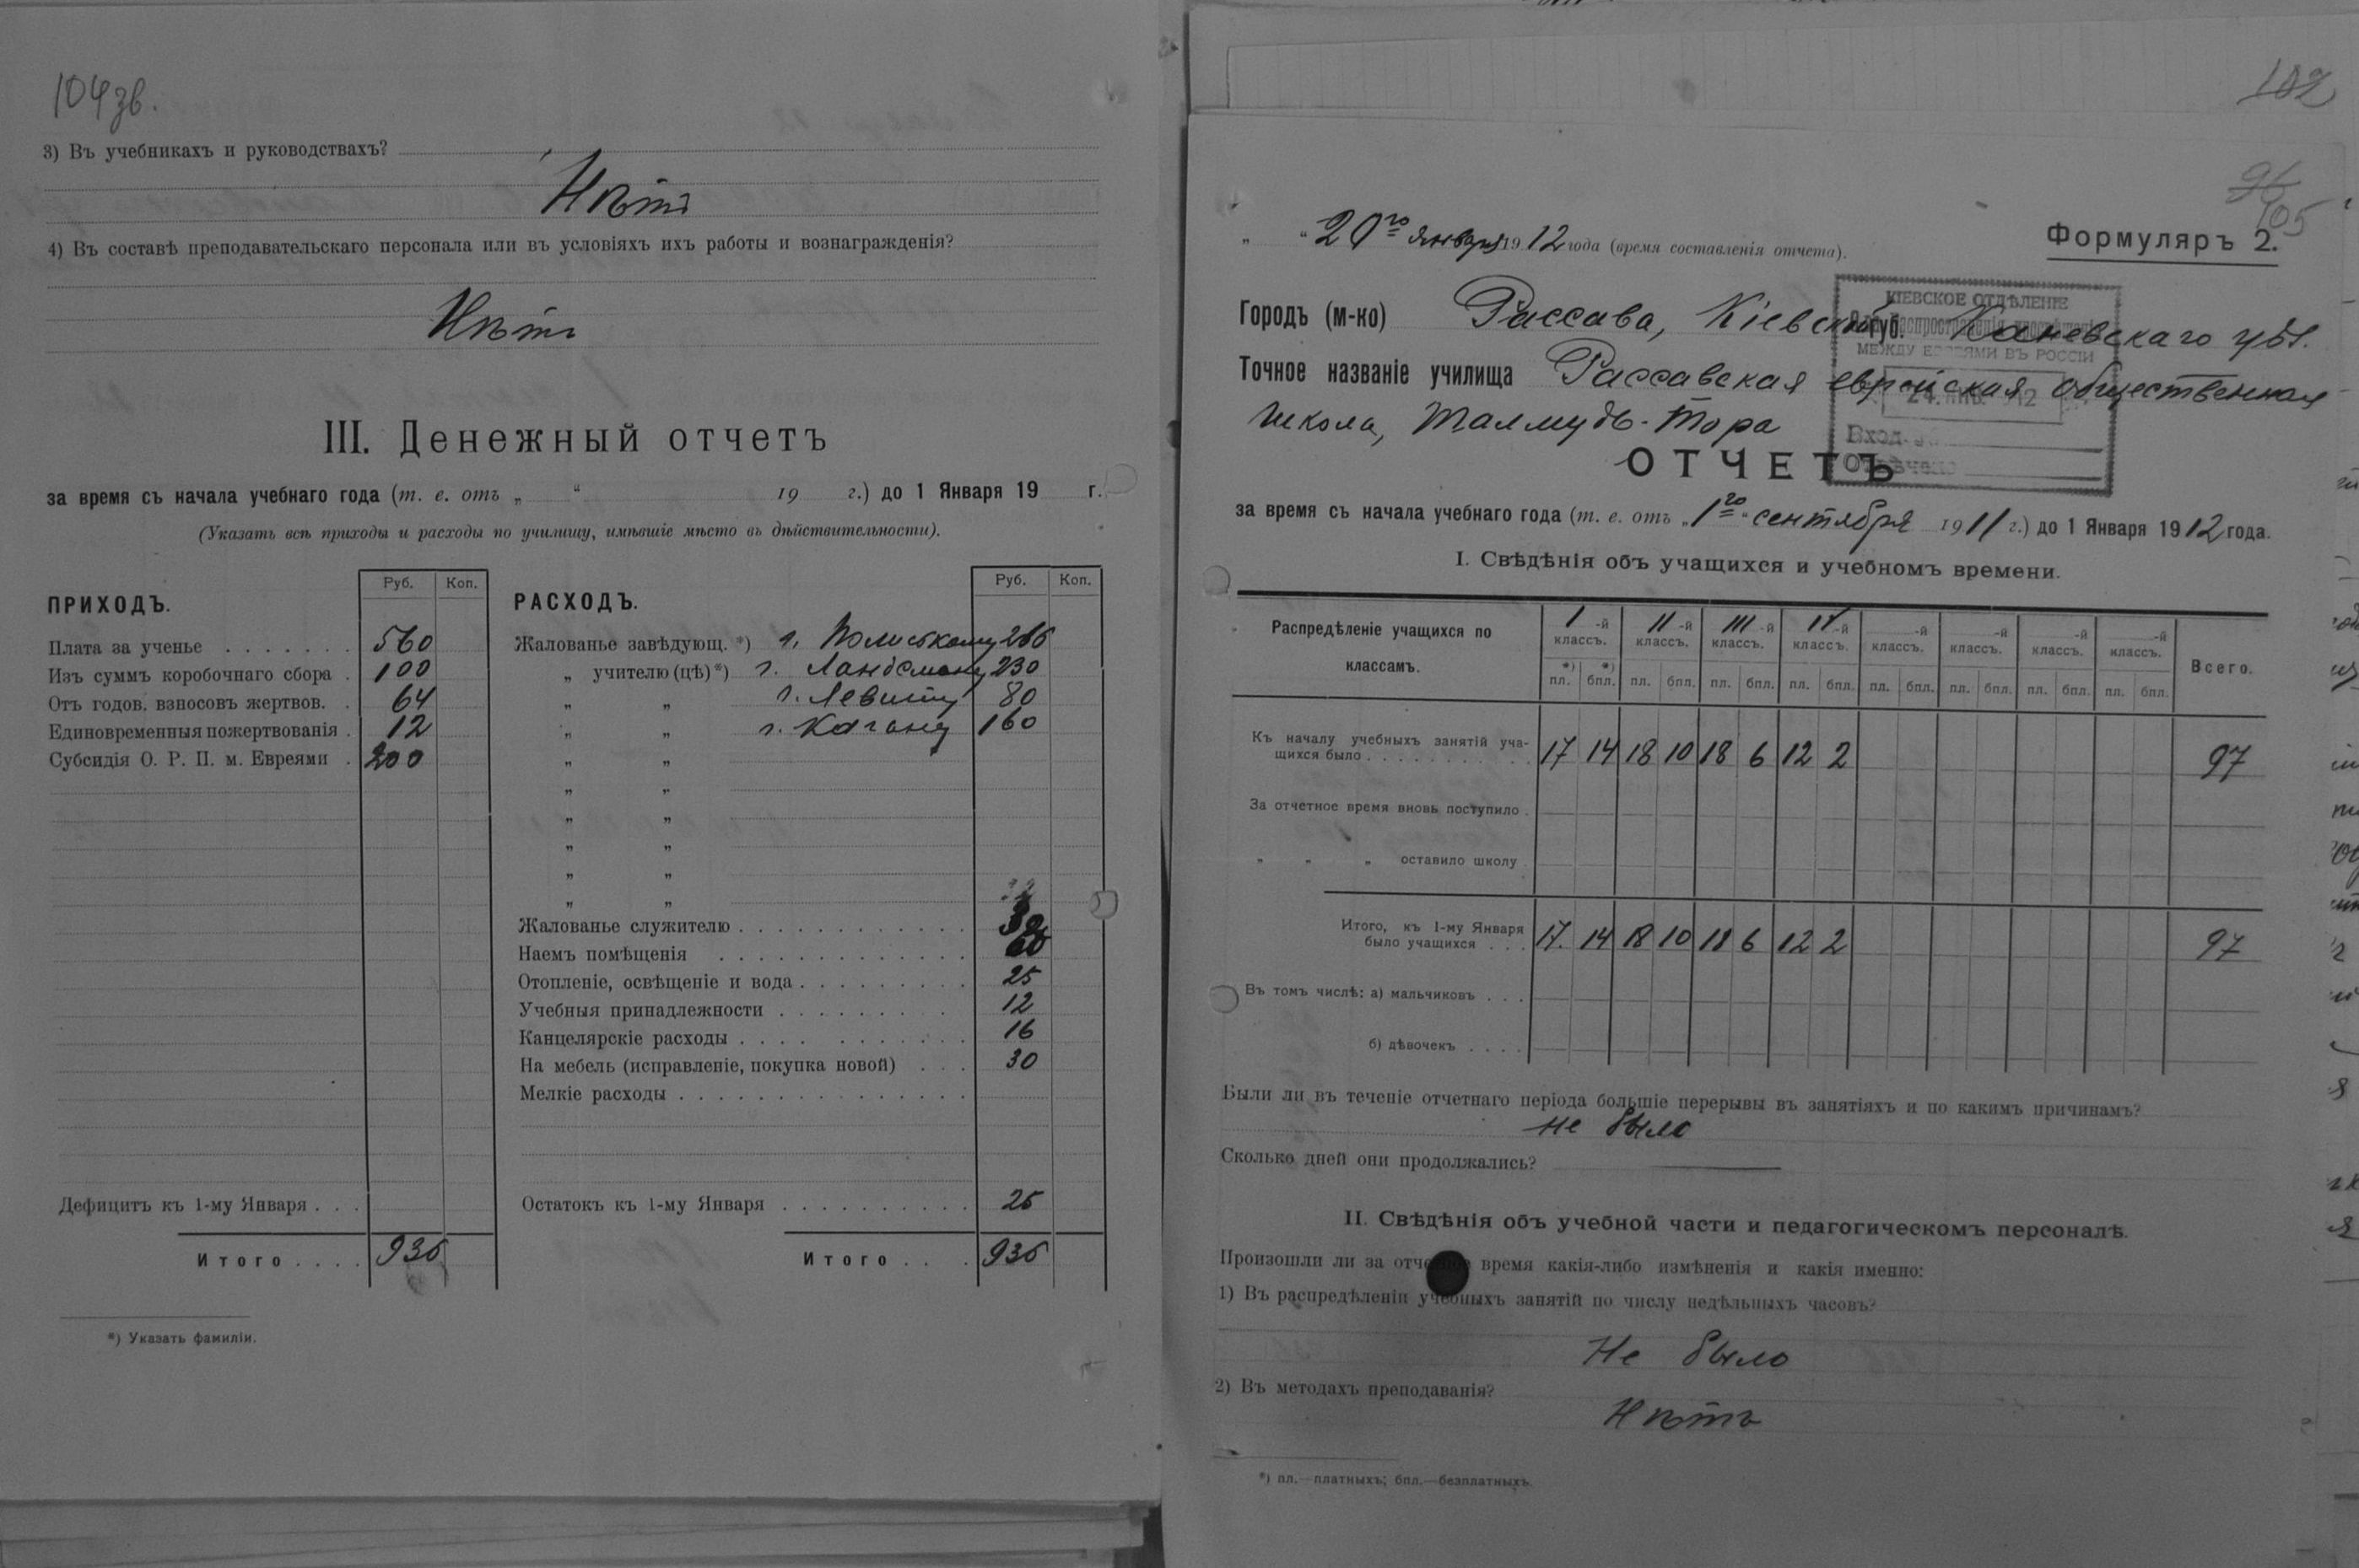 104 зв.
3) Въ учебникахъ и руководствахъ?
Нѣтъ
4) Въ составѣ преподавательскаго персонала или въ условіяхъ ихъ работы и вознагражденія?
Нѣтъ
III. Денежный отчетъ
за время съ начала учебнаго года (т. е. отъ „ “ 19 г.) до 1 Января 19 г.
(Указать всѣ приходы и расходы по училищу, имѣвшіе мѣсто въ дѣйствительности).
ПРИХОДЪ. Руб. Коп.
Плата за ученье 560
Изъ суммъ коробочнаго сбора 100
Отъ годов. взносовъ жертвов. 64
Единовременныя пожертвованія 12
Субсидія О. Р. П. м. Евреями 200
Дефицитъ къ 1-му Января
Итого 936
*) Указать фамиліи.
РАСХОДЪ. Руб. Коп.
Жалованье завѣдующ. *) г.
„ учителю (цѣ) *) г. Ландсману 230
„ „ г. Левиту 80
„ „ г. Кагану 160
„ „
„ „
„ „
„ „
„ „
„ „
Жалованье служителю
Наемъ помѣщенія 60
Отопленіе, освѣщеніе и вода 25
Учебныя принадлежности 12
Канцелярскіе расходы 16
На мебель (исправленіе, покупка новой) 30
Мелкіе расходы
Остатокъ къ 1-му Января
Итого 936
102
96
105
„ “ 20го января 1912 года (время составленія отчета).
Формуляръ 2.
Городъ (м-ко) Рассава, Кіевской губ. Каневскаго уѣз.
КІЕВСКОЕ ОТДѢЛЕНІЕ
МЕЖДУ ЕВРЕЯМИ ВЪ РОССІИ
24. ЯНВ. 12
Вход.
Отвѣчено
Точное названіе училища Рассавская еврейская общественная
школа, Талмудъ-Тора
ОТЧЕТЪ
за время съ начала учебнаго года (т. е. отъ „1го“ сентября 1911 г.) до 1 Января 1912 года.
I. Свѣдѣнія объ учащихся и учебномъ времени.
Распредѣленіе учащихся по классамъ. I-й классъ. II-й классъ. III-й классъ. IV-й классъ. -й классъ. -й классъ. -й классъ. -й классъ. Всего.
*) пл. *) бпл. пл. бпл. пл. бпл. пл. бпл. пл. бпл. пл. бпл. пл. бпл. пл. бпл.
Къ началу учебныхъ занятій учащихся было 17 14 18 10 18 6 12 2 97
За отчетное время вновь поступило
„ „ „ оставило школу
Итого, къ 1-му Января было учащихся 17 14 18 10 18 6 12 2 97
Въ томъ числѣ: а) мальчиковъ
б) дѣвочекъ
Были ли въ теченіе отчетнаго періода большіе перерывы въ занятіяхъ и по какимъ причинамъ?
не было
Сколько дней они продолжались? —
II. Свѣдѣнія объ учебной части и педагогическомъ персоналѣ.
Произошли ли за отчетное время какія-либо измѣненія и какія именно:
1) Въ распредѣленіи учебныхъ занятій по числу недѣльныхъ часовъ?
Не было
2) Въ методахъ преподаванія?
Нѣтъ
*) пл.—платныхъ; бпл.—безплатныхъ.